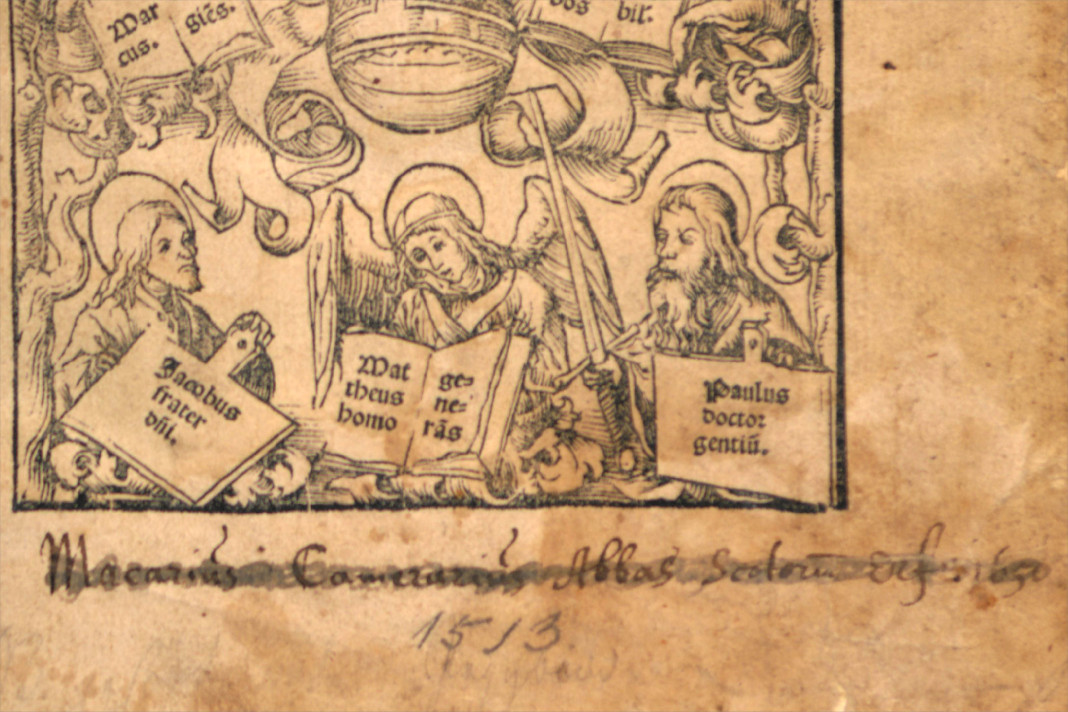 Mar
cus.
giēs.
dos
bir.
Jacobus
frater
dn̄i.
Mat
theus
homo
ge=
ne=
rās
Paulus
doctor
gentiū.
Macarius Camerarius Abbas Scotorū
1513